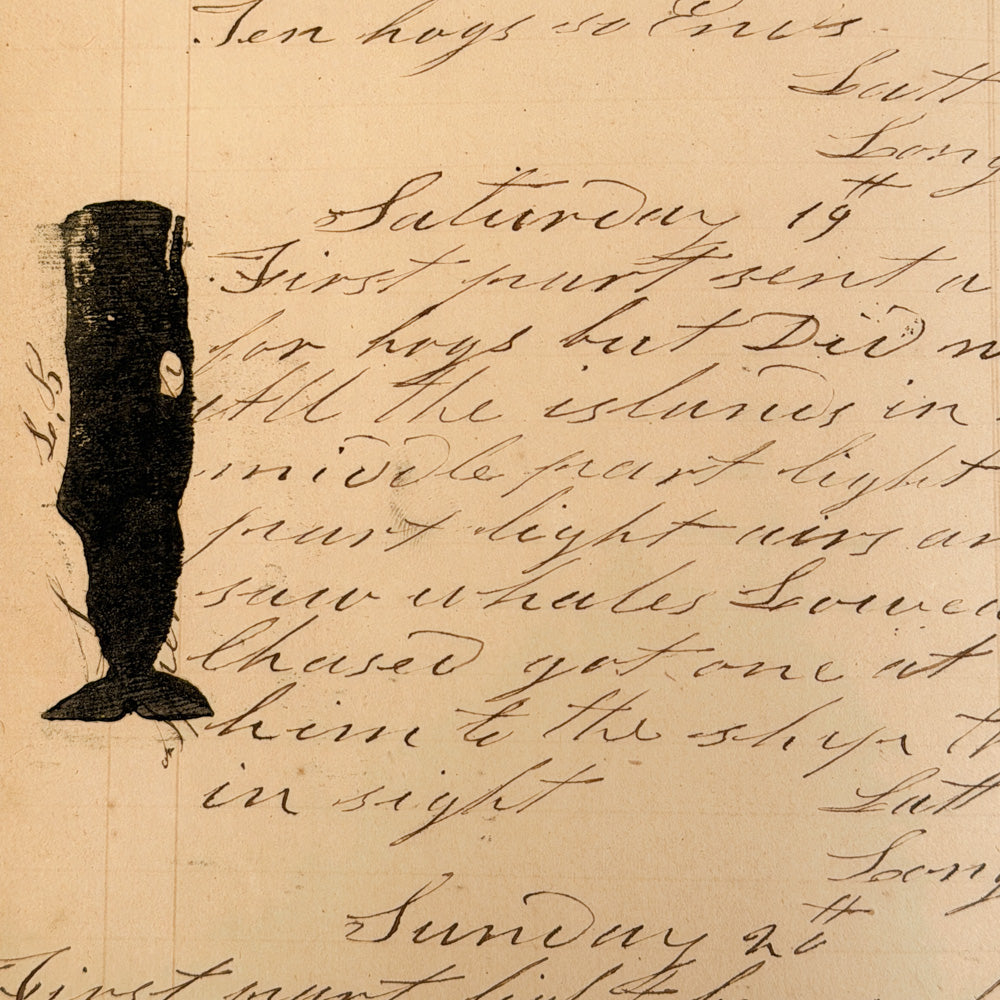 Ten hogs so Ends
Latt
Long
Saturday 19th
First part sent a
for hogs but Did n
All the islands in
middle part light
part light airs an
saw whales Lowed
Chased got one at
him to the ship th
in sight
Latt
Long
Sunday 20th
First part light